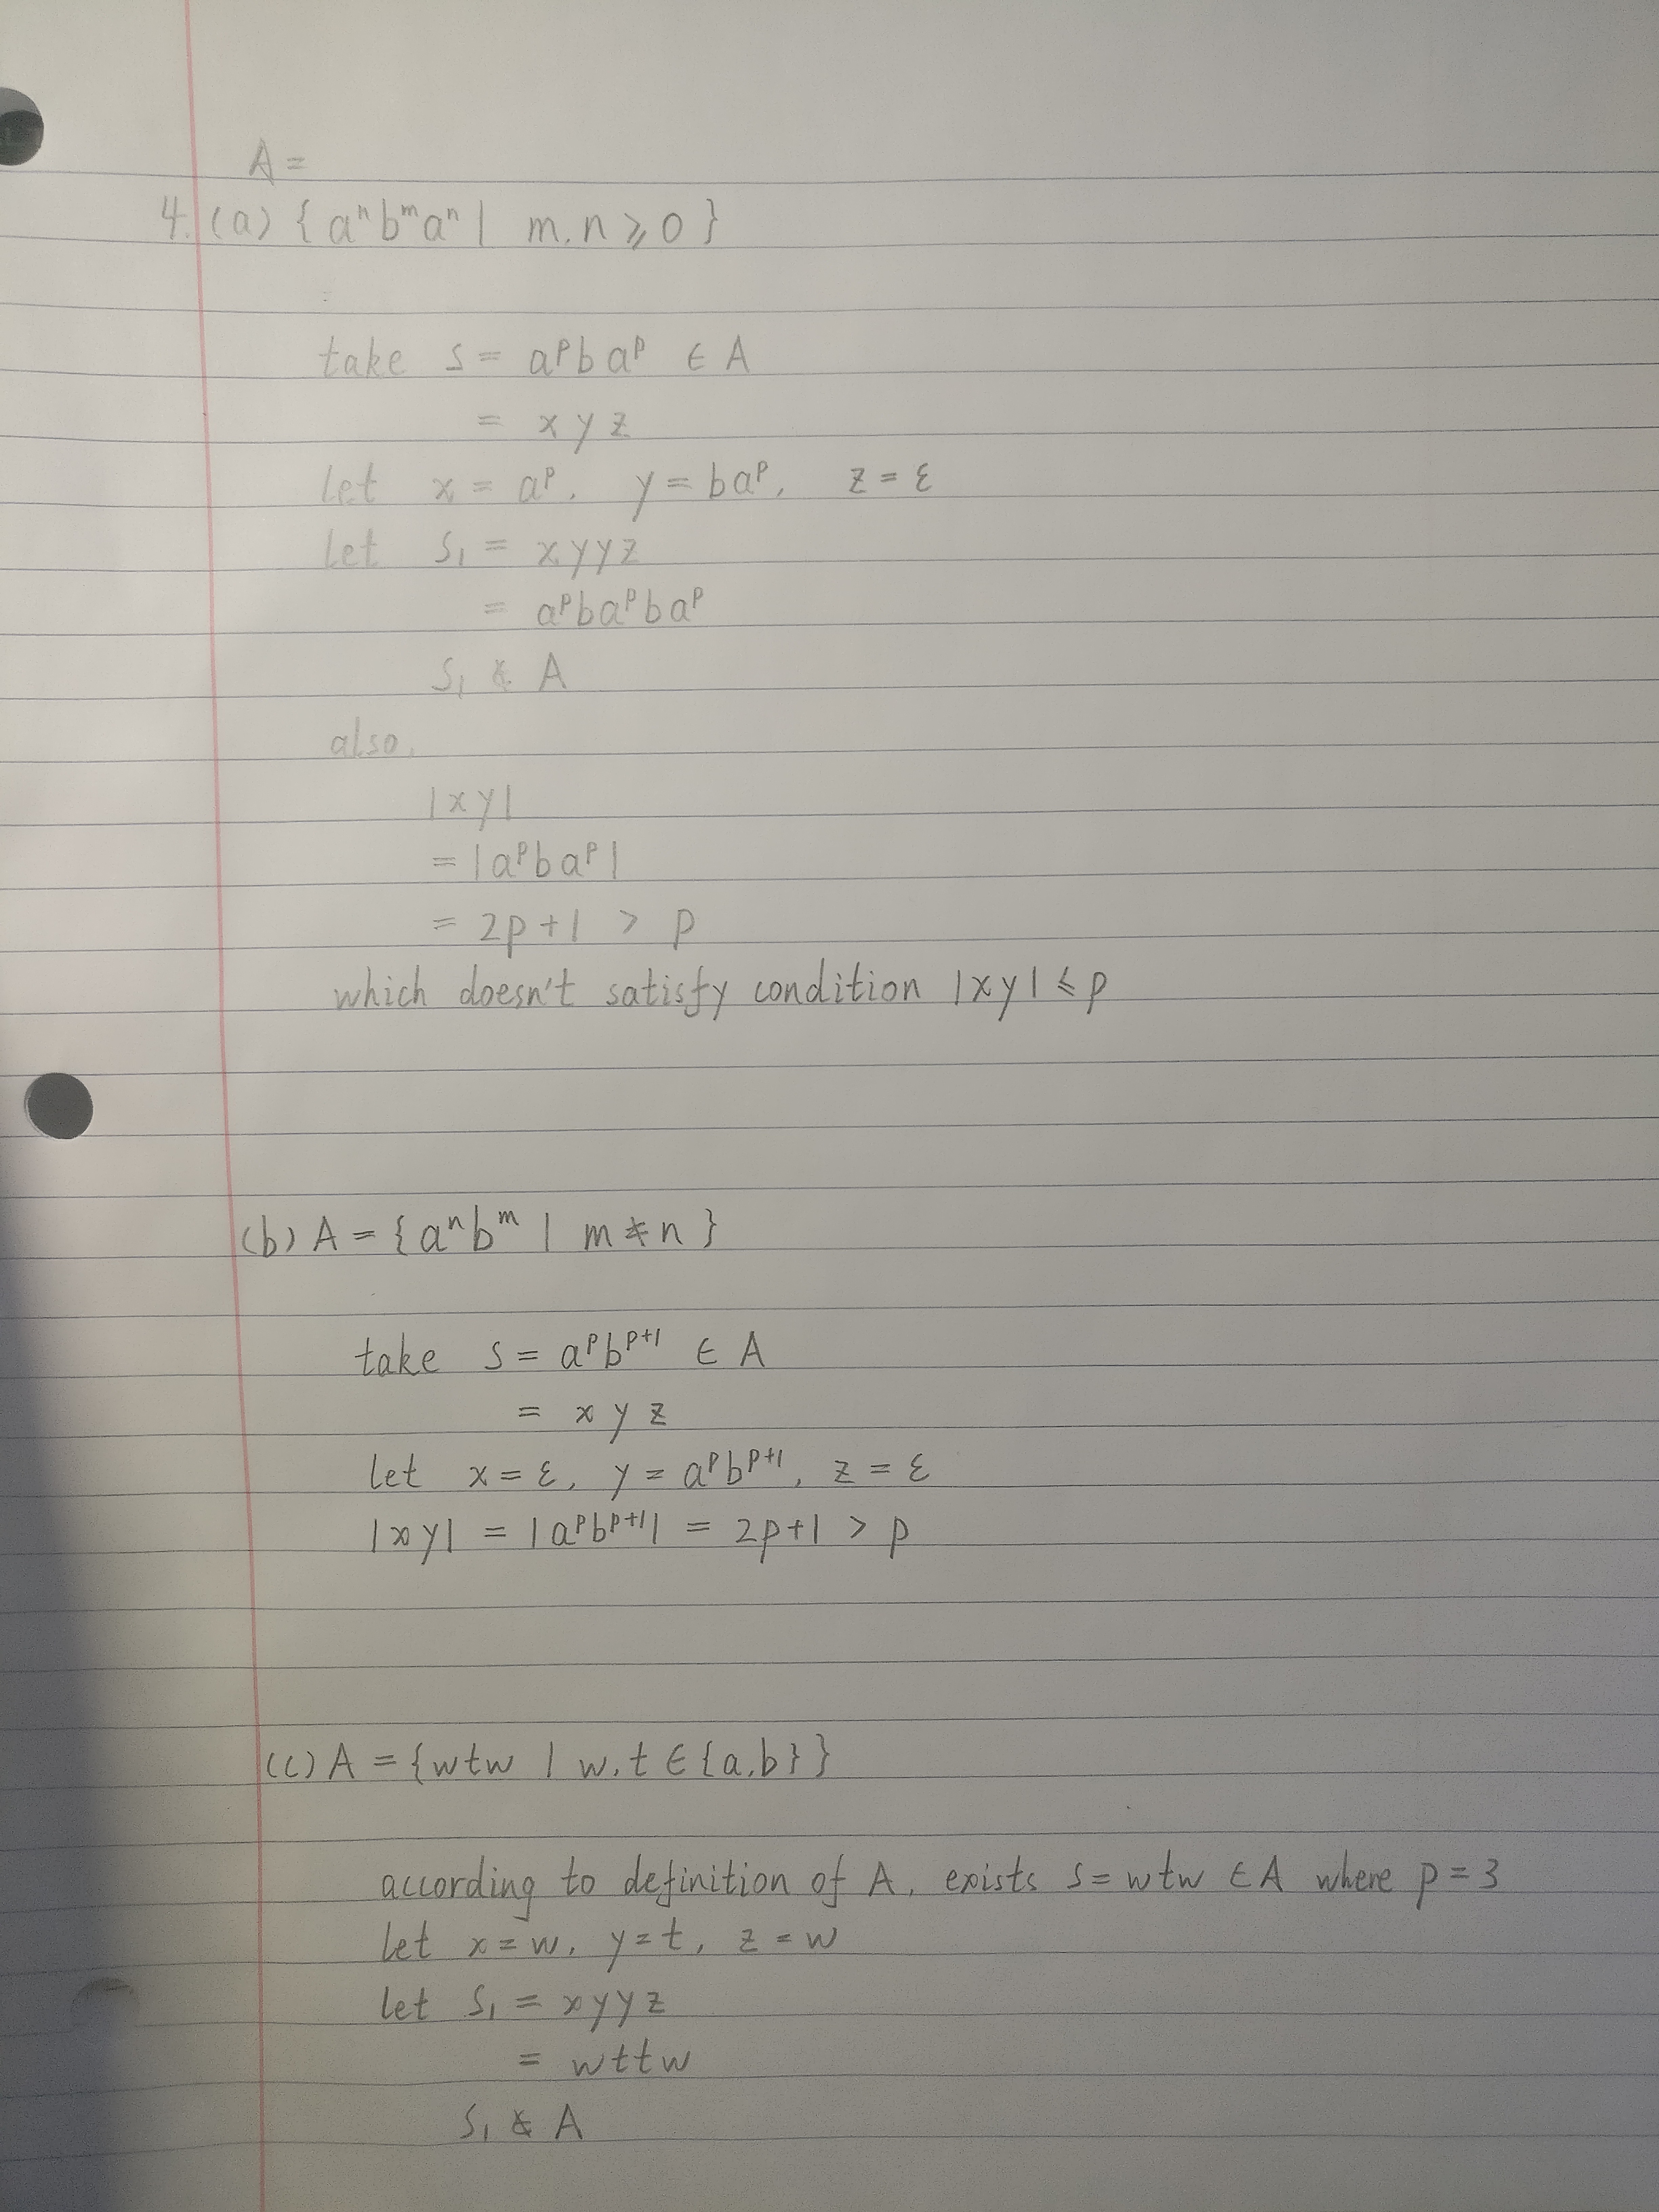 A =
4. (a) { aⁿbᵐaⁿ | m, n ⩾ 0 }
take s = aᵖbaᵖ ∈ A
= x y z
let x = aᵖ, y = baᵖ, z = ε
let s₁ = xyyz
= aᵖbaᵖbaᵖ
s₁ ∉ A
also,
|xy|
= |aᵖbaᵖ|
= 2p+1 > p
which doesn't satisfy condition |xy| ⩽ p
(b) A = { aⁿbᵐ | m ≠ n }
take s = aᵖbᵖ⁺¹ ∈ A
= x y z
let x = ε, y = aᵖbᵖ⁺¹, z = ε
|xy| = |aᵖbᵖ⁺¹| = 2p+1 > p
(c) A = {wtw | w,t ∈ {a,b}}
according to definition of A, exists s = wtw ∈ A where p = 3
let x = w, y = t, z = w
let s₁ = xyyz
= wttw
s₁ ∉ A